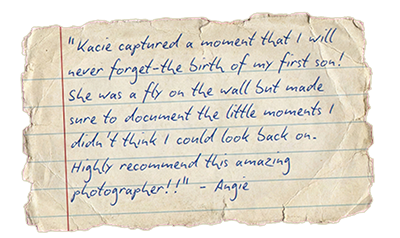 "Kacie captured a moment that I will
never forget-the birth of my first son!
She was a fly on the wall but made
sure to document the little moments I
didn't think I could look back on.
Highly recommend this amazing
photographer!!" - Angie